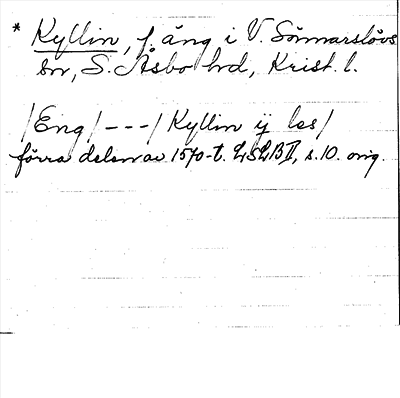 * Kyllin, f. äng i V. Sönnarslövs
sn, S. Åsbo hd, Krist. l.
/Eng/ - - - / Kyllin ij les/
förra delen av 1570-t. LSLB II, s. 10. orig.